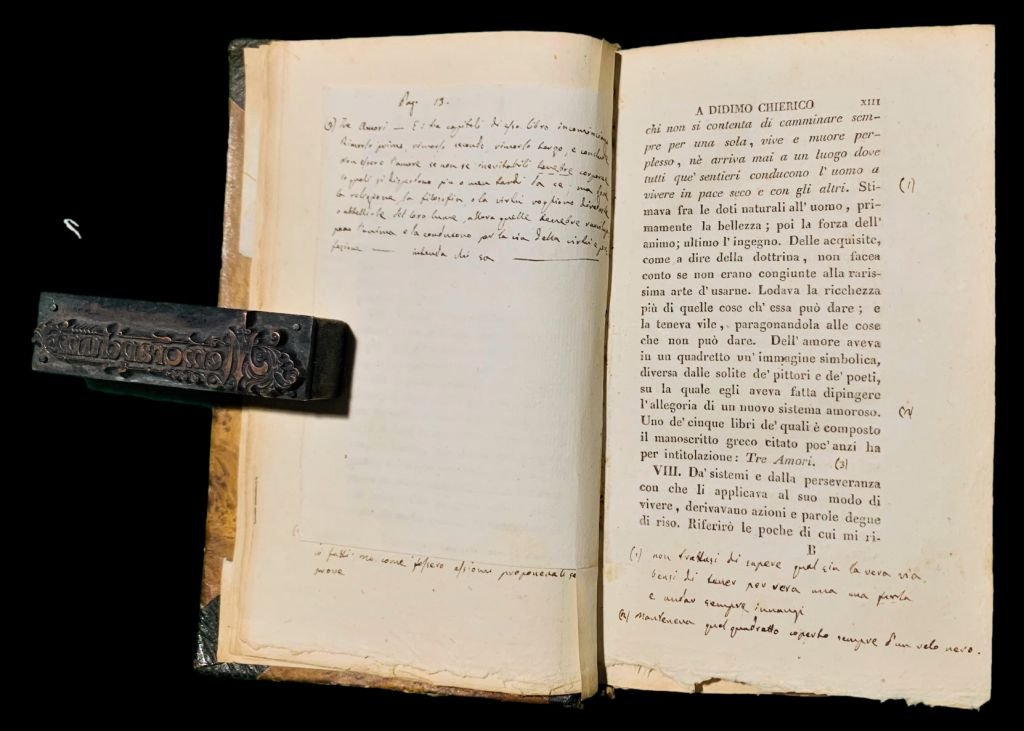 Pag. 13.
(3) Tre Amori — E i tre capitoli di esso libro incominciano
Rimorso primo, rimorso secondo, rimorso terzo, e conclude
non essere l'amore se non se inevitabili tenebre corporee
le quali si disperdono più o men tardi da se: ma
la religione, la filosofia e la virtù vogliono
del loro lume, allora quelle tenebre
l'anima e la conducono per la via della virtù a
— intenda chi sa —
i fatti: ma come fossero assiomi proponevali
prove
A DIDIMO CHIERICO XIII
chi non si contenta di camminare sem-
pre per una sola, vive e muore per-
plesso, nè arriva mai a un luogo dove
tutti que' sentieri conducono l'uomo a
vivere in pace seco e con gli altri. Sti- (1)
mava fra le doti naturali all'uomo, pri-
mamente la bellezza; poi la forza dell'
animo; ultimo l'ingegno. Delle acquisite,
come a dire della dottrina, non facea
conto se non erano congiunte alla raris-
sima arte d'usarne. Lodava la ricchezza
più di quelle cose ch'essa può dare; e
la teneva vile, paragonandola alle cose
che non può dare. Dell'amore aveva
in un quadretto un'immagine simbolica,
diversa dalle solite de'pittori e de'poeti,
su la quale egli aveva fatta dipingere
l'allegoria di un nuovo sistema amoroso. (2)
Uno de'cinque libri de'quali è composto
il manoscritto greco citato poc'anzi ha
per intitolazione: Tre Amori. (3)
VIII. Da'sistemi e dalla perseveranza
con che li applicava al suo modo di
vivere, derivavano azioni e parole degne
di riso. Riferirò le poche di cui mi ri-
B
(1) non trattasi di sapere qual sia la vera via
bensì di tener per vera una
e andar sempre innanzi
(2) Manteneva quel quadretto coperto sempre d'un velo nero.